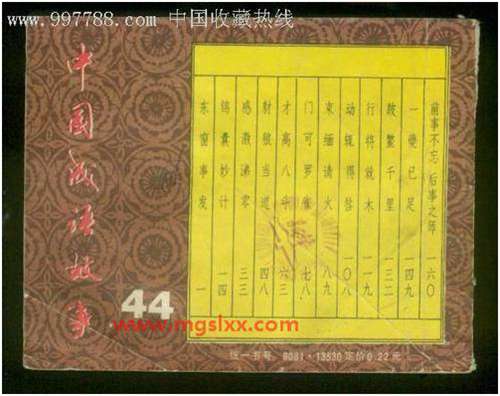 www.997788.com 中国收藏热线
中国成语故事
44
东窗事发 一
锦囊妙计 一四
感激涕零 三三
豺狼当道 四八
才高八斗 六三
门可罗雀 七八
束缊请火 八九
动辄得咎 一〇八
行将就木 一一九
跛鳖千里 一三二
一夔已足 一四九
前事不忘 后事之师 一六〇
www.mgslxx.com
统一书号: 8081·13530 定价0.22元